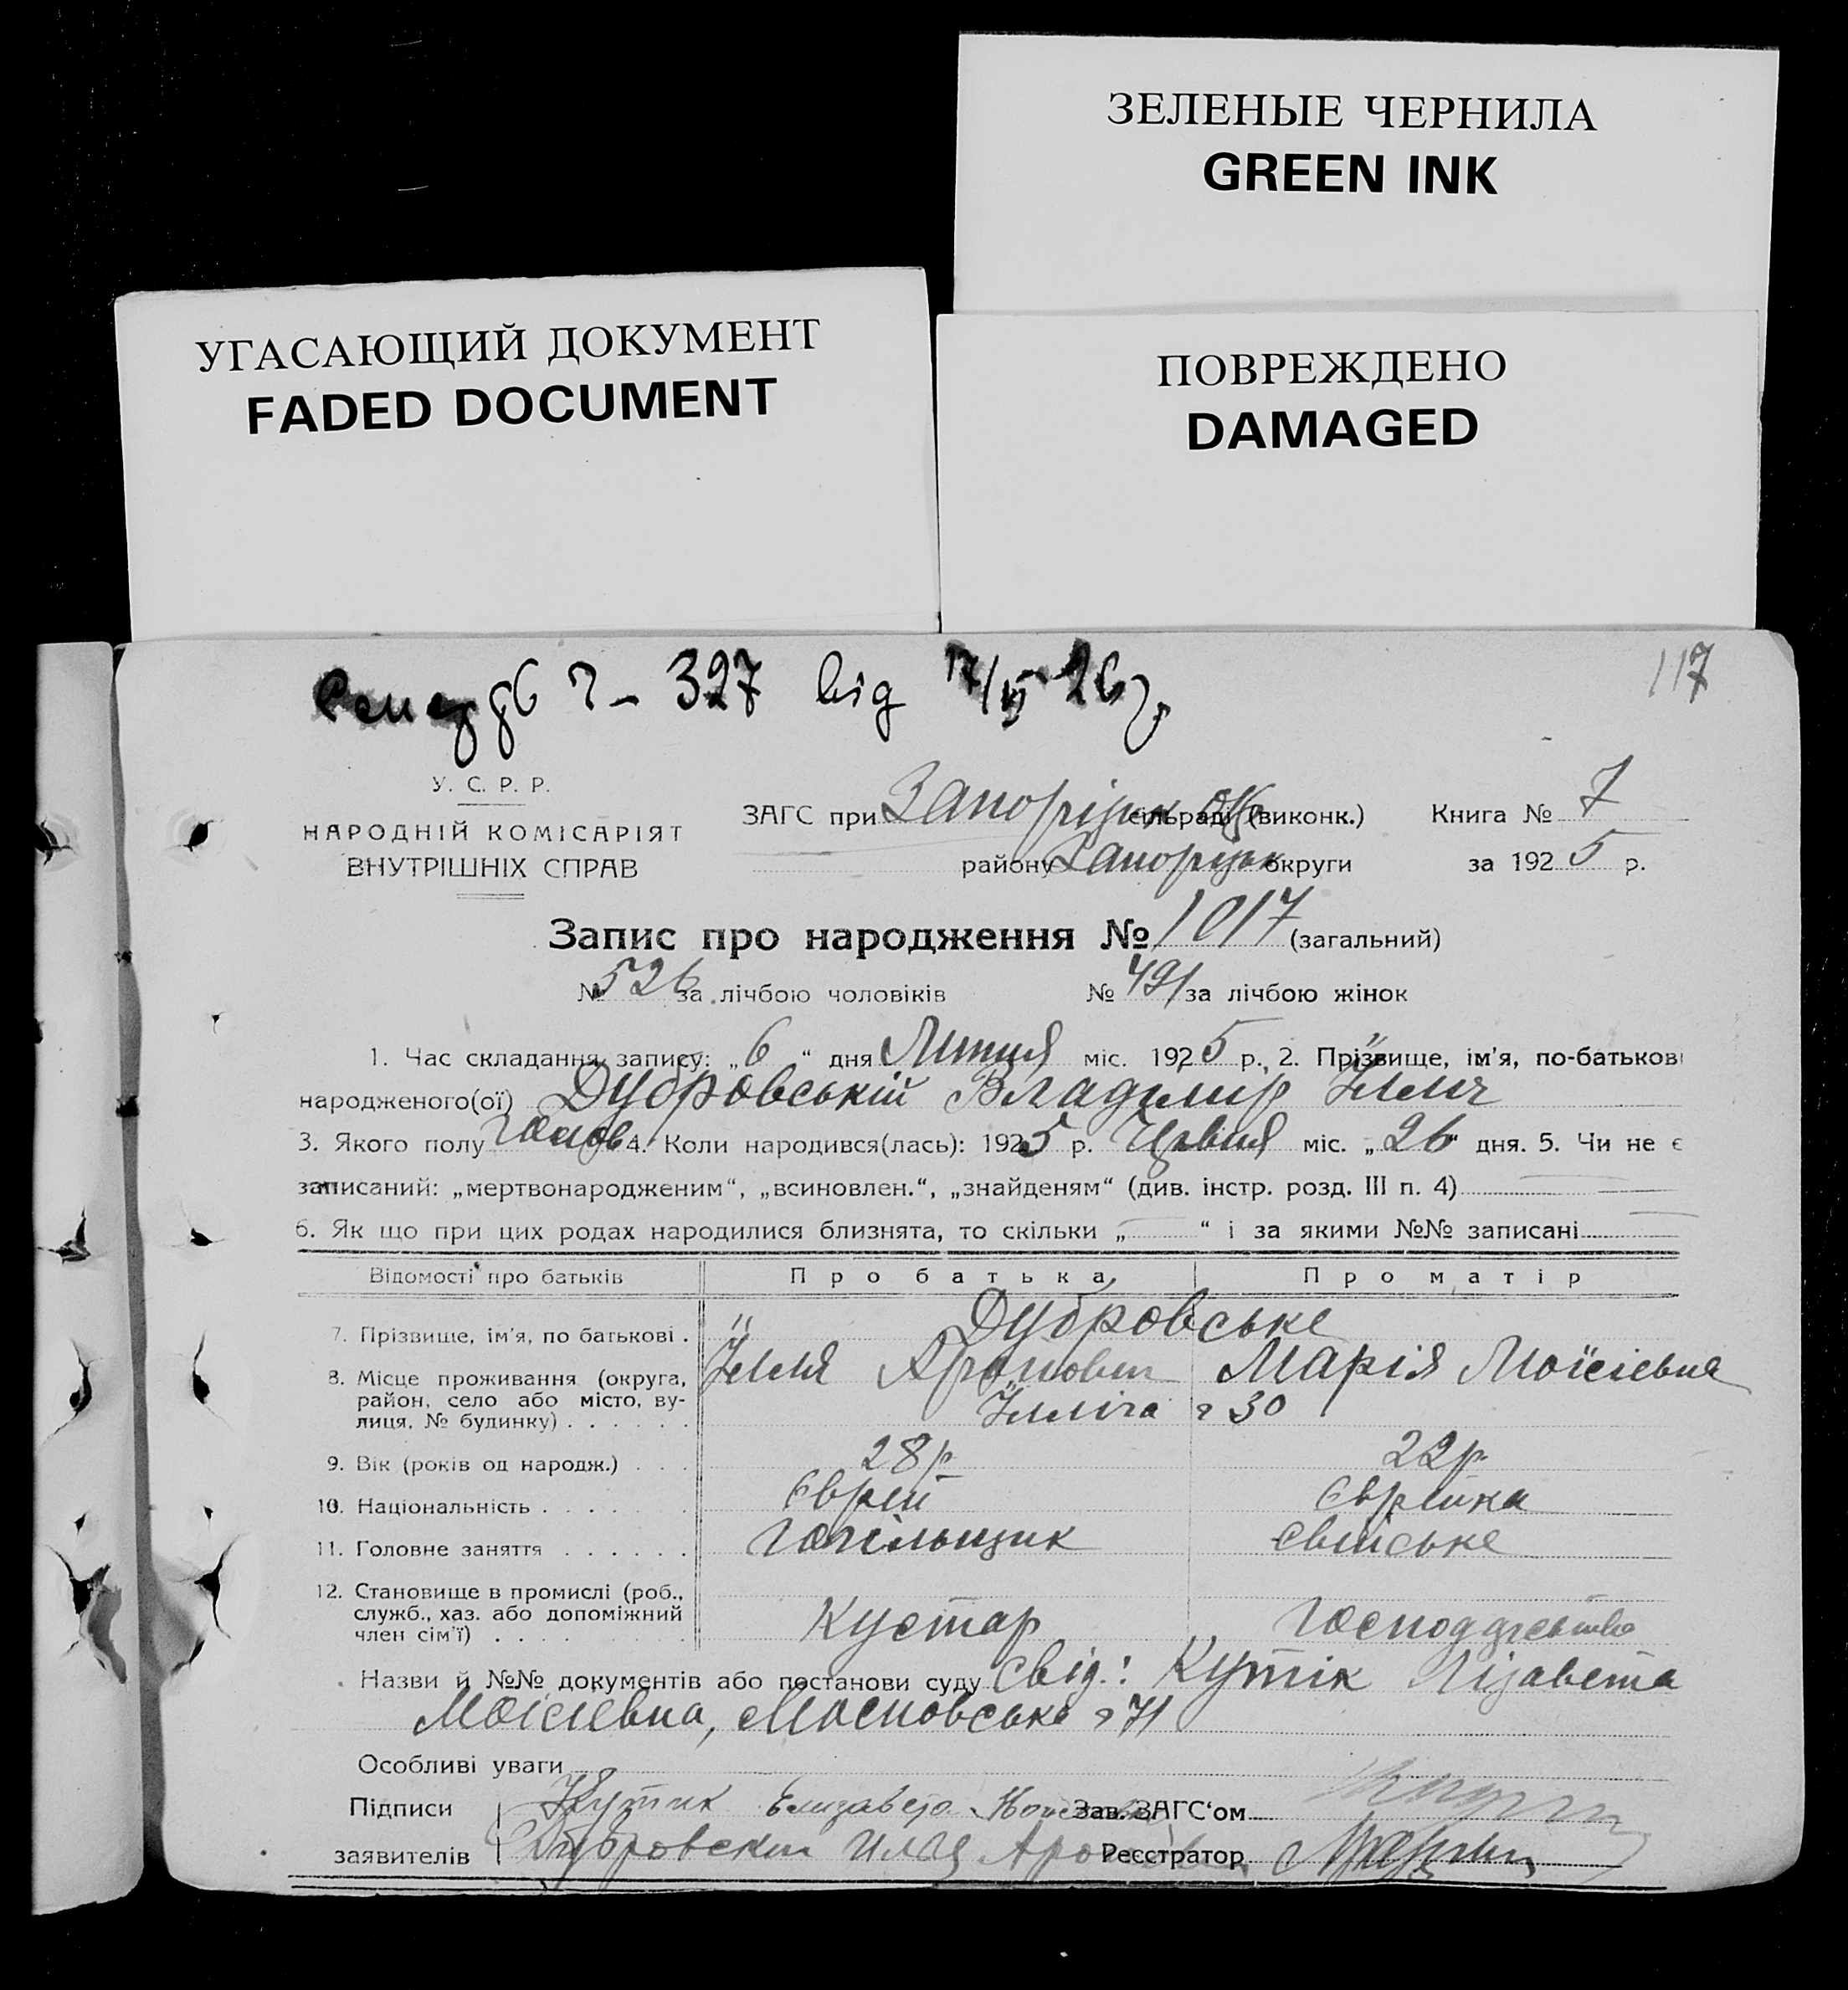 ЗЕЛЕНЫЕ ЧЕРНИЛА
GREEN INK
УГАСАЮЩИЙ ДОКУМЕНТ
FADED DOCUMENT
ПОВРЕЖДЕНО
DAMAGED
327 від 17/VI 26 р.
117
У. С. Р. Р.
НАРОДНІЙ КОМІСАРІЯТ
ВНУТРІШНІХ СПРАВ
ЗАГС при Запоріжк сільраді (виконк.) Книга № 7
району Запоріжк округи за 1925 р.
Запис про народження № 1017 (загальний)
№ 526 за лічбою чоловіків № 491 за лічбою жінок
1. Час складання запису: „6“ дня Липня міс. 1925 р. 2. Прізвище, ім'я, по-батькові
народженого(ої) Дубровський Владимир Ілліч
3. Якого полу 4. Коли народився(лась): 1925 р. Червня міс. „26“ дня. 5. Чи не є
записаний: „мертвонародженим“, „всиновлен.“, „знайденям“ (див. інстр. розд. III п. 4)
6. Як що при цих родах народилися близнята, то скільки „ “ і за якими №№ записані
Відомості про батьків Про батька Про матір
7. Прізвище, ім'я, по батькові . Дубровське
Ілля Аронович Марія Моїсієвна
8. Місце проживання (округа,
район, село або місто, ву-
лиця, № будинку) . . . . . . Ілліча 30
9. Вік (років од народж.) . . . 28 р 22 р
10. Національність . . . . . . Єврей Єврейка
11. Головне заняття . . . . . . свійське
12. Становище в промислі (роб.,
служб., хаз. або допоміжний
член сім'ї) . . . . Кустар господарство
Назви й №№ документів або постанови суду Свід.: Кутік Лізавета
Моісіевна, Московська 71
Особливі уваги
Підписи Кутик Елизавета Зав. ЗАГС‘ом
заявителів Дубровский Илья Реєстратор